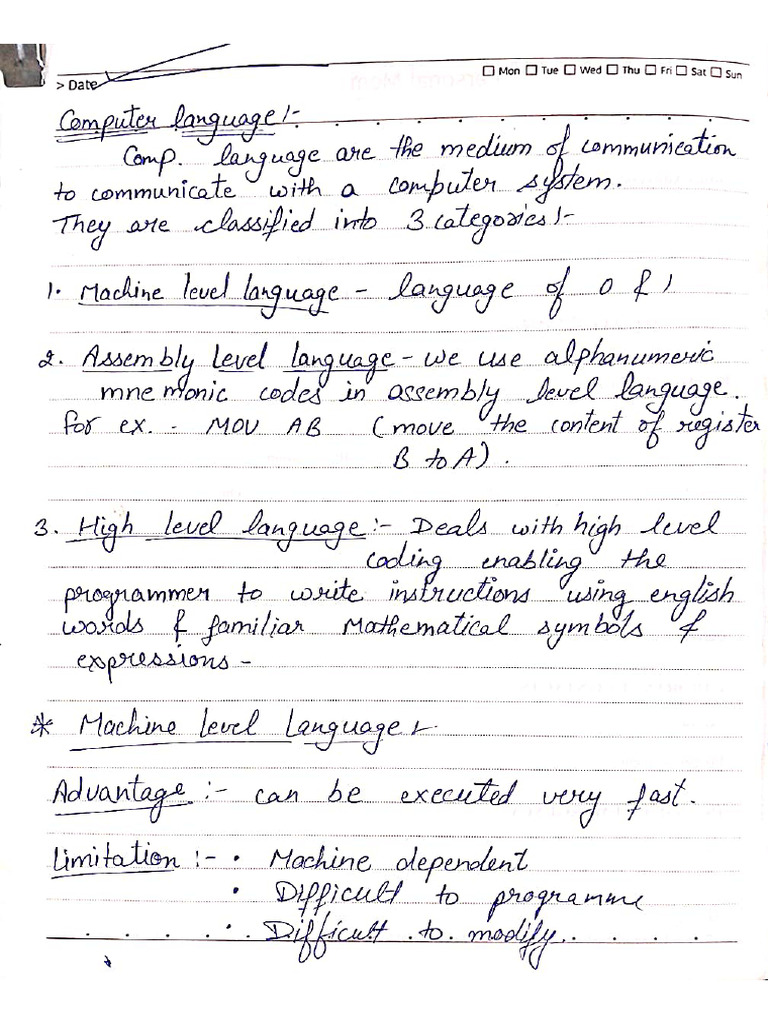 Mon Tue Wed Thu Fri Sat Sun
> Date
Computer language :-
Comp. language are the medium of communication
to communicate with a computer system.
They are classified into 3 categories :-
1. Machine level language - language of 0 & 1
2. Assembly level language - we use alphanumeric
mnemonic codes in assembly level language.
for ex. - MOV AB (move the content of register
B to A).
3. High level language :- Deals with high level
coding enabling the
programmer to write instructions using english
words & familiar Mathematical symbols &
expressions -
* Machine level Language :-
Advantage :- can be executed very fast.
Limitation :- • Machine dependent
• Difficult to programme
• Difficult to modify.